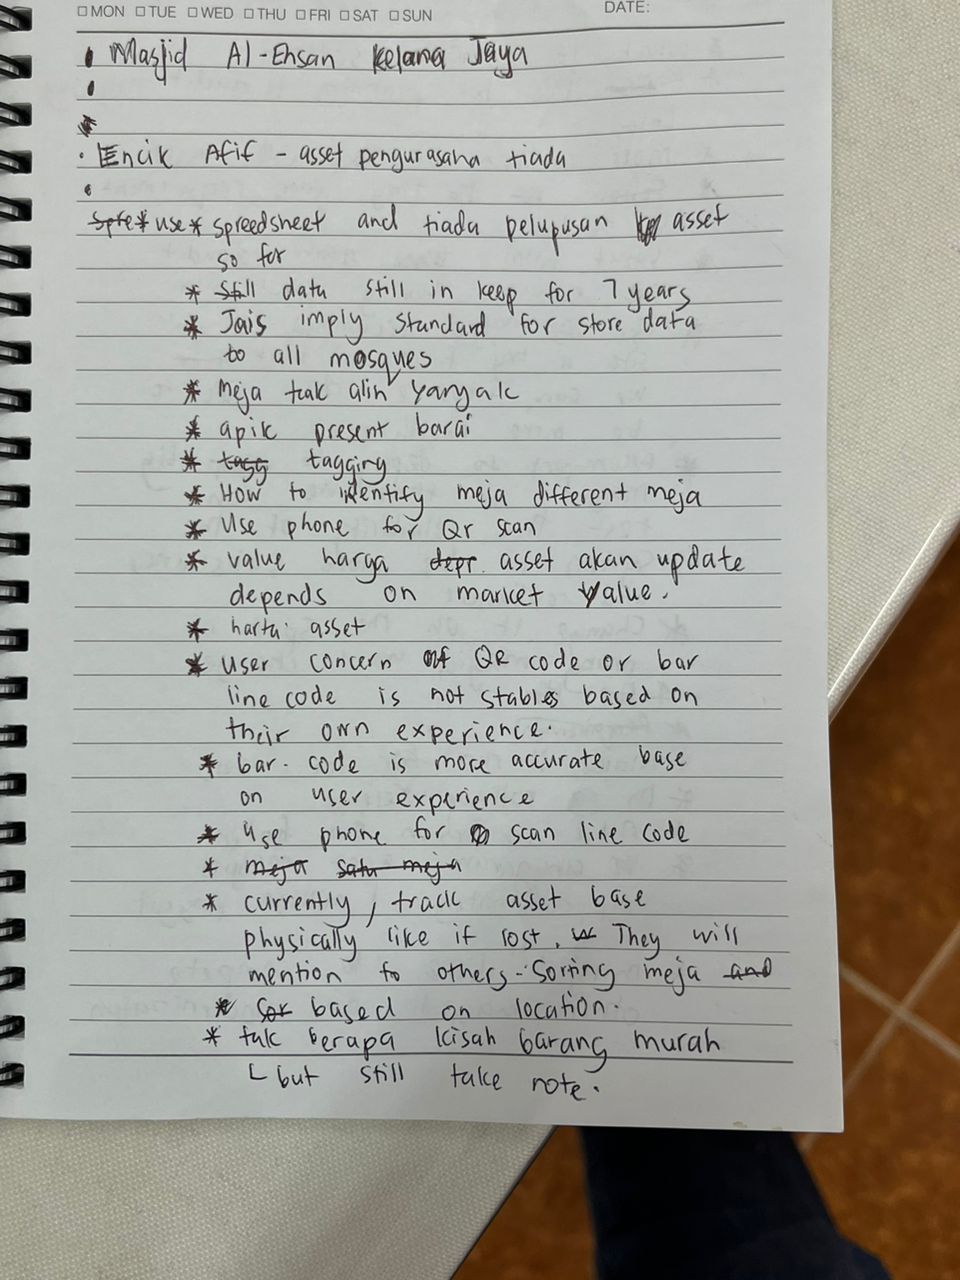 MON TUE WED THU FRI SAT SUN DATE:
Masjid Al-Ehsan Kelana Jaya
Encik Afif - asset pengurasaha tiada
use * spreedsheet and tiada pelupusan asset
so for
* data still in keep for 7 years
* Jais imply standard for store data
to all mosques
* meja tak alih yang
* present
* tagging
* How to identify meja different meja
* Use phone for Qr scan
* value harga asset akan update
depends on market value.
* harta asset
* user concern of QR code or bar
line code is not stables based on
their own experience.
* bar-code is more accurate base
on user experience
* use phone for scan line code
* meja satu meja
* currently, track asset base
physically like if lost. They will
mention to others. Sorting meja and
* based on location.
* tak berapa kisah barang murah
but still take note.